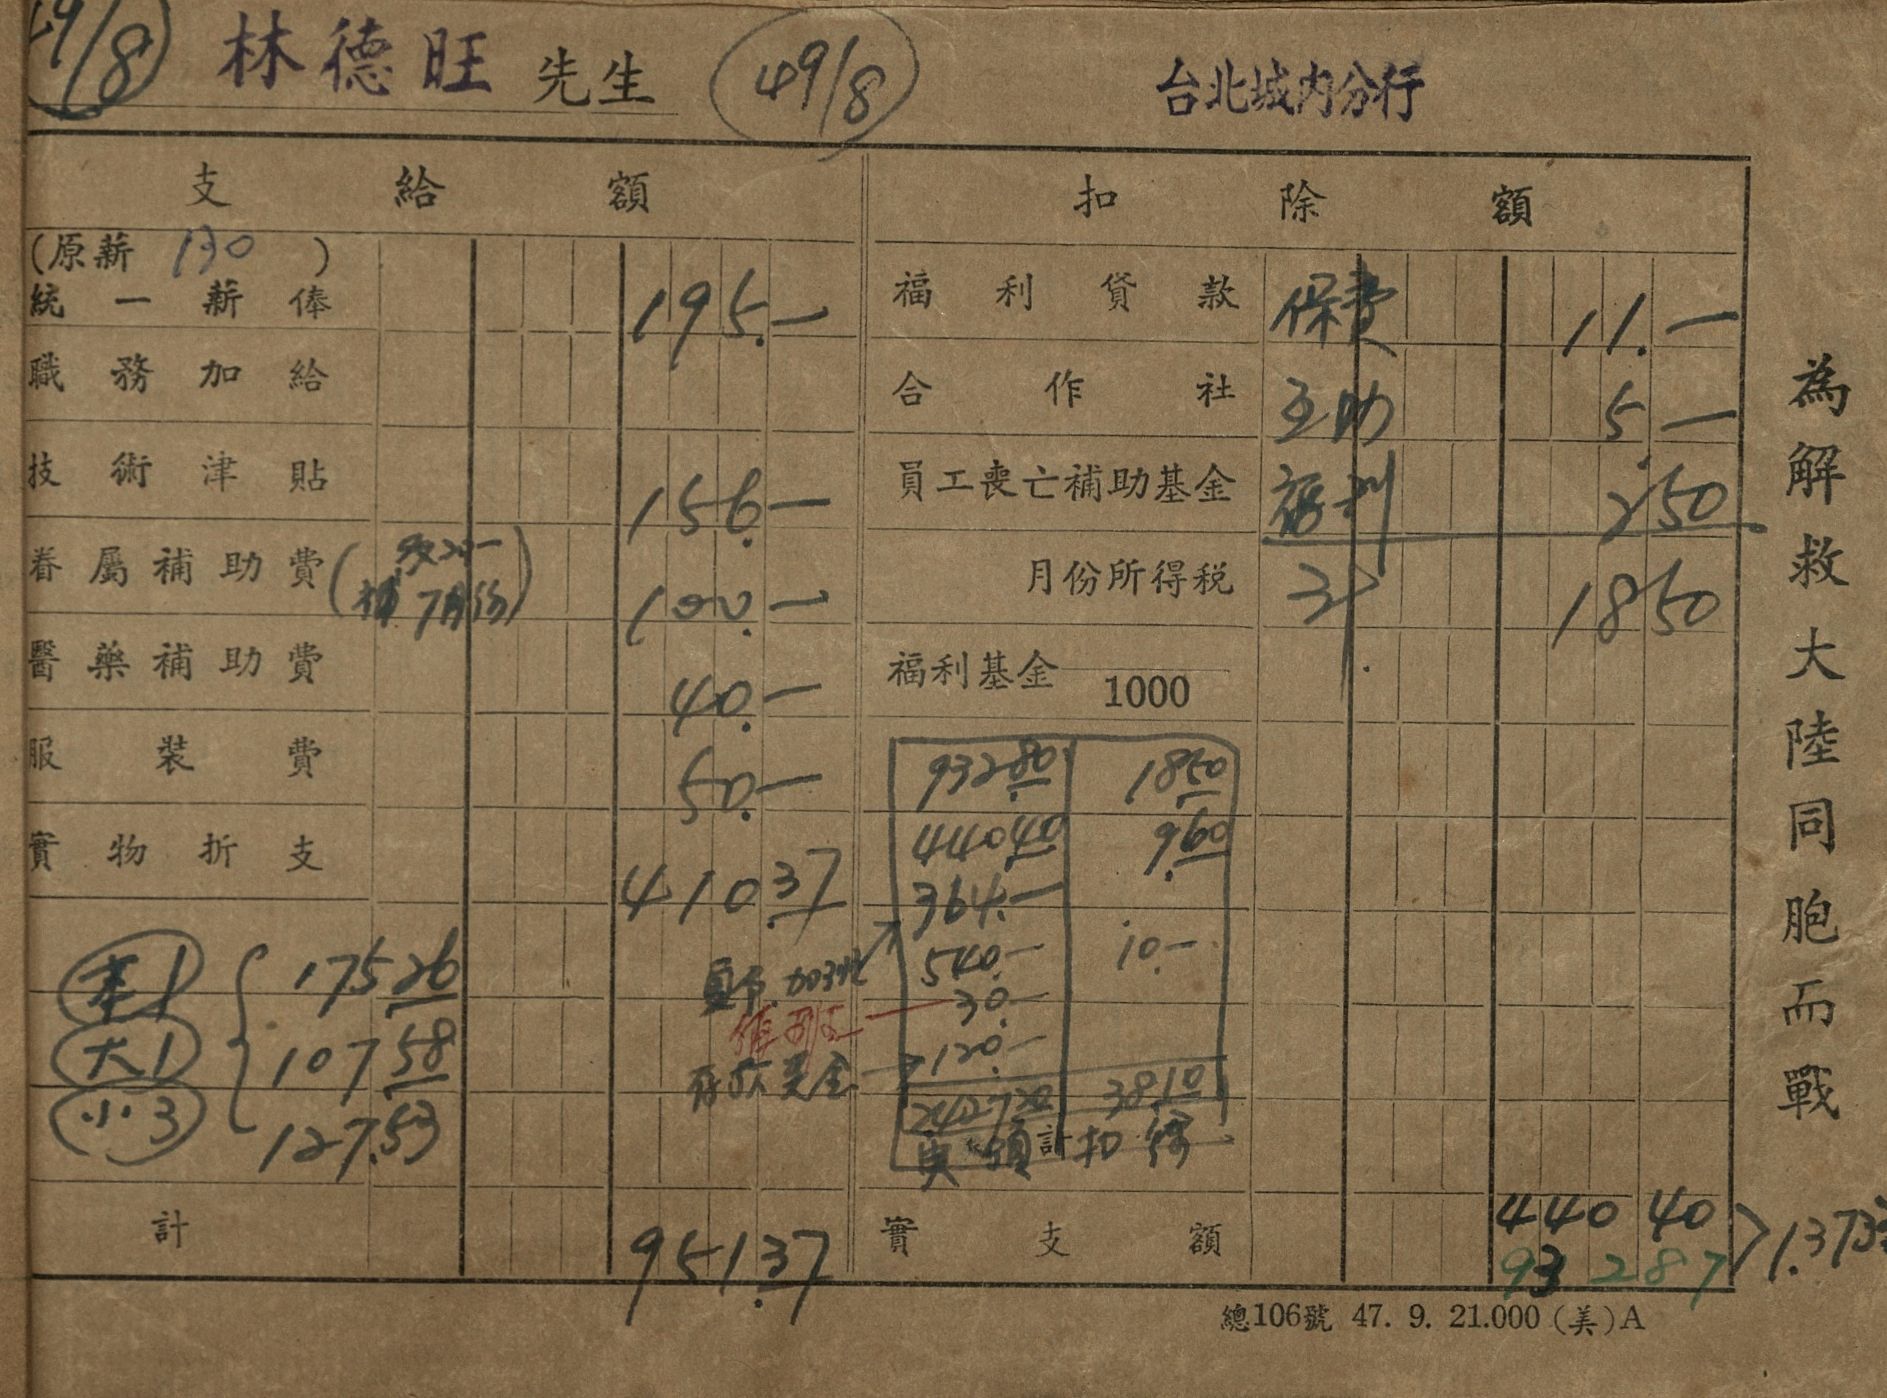 49/8 林德旺 先生 49/8 台北城内分行
支給額 扣除額
(原薪 130 )
統一薪俸 195.—
福利貸款 保費 11.—
職務加給
合作社 互助 5.—
技術津貼 156.—
員工喪亡補助基金 福利 2.50
眷屬補助費 (
補7月份) 100.—
月份所得税 18.50
醫藥補助費 40.—
福利基金 1000
服裝費 50.—
932.80 18.50
實物折支 410.37
440.40 9.60
364.—
本1 175.26
540.— 10.—
30.—
大1 107.58
120.—
小3 127.53
2427.20 38.10
實領 計 扣
計 951.37
實支額 440 40
932 87
為解救大陸同胞而戰
總106號 47. 9. 21.000 (美)A